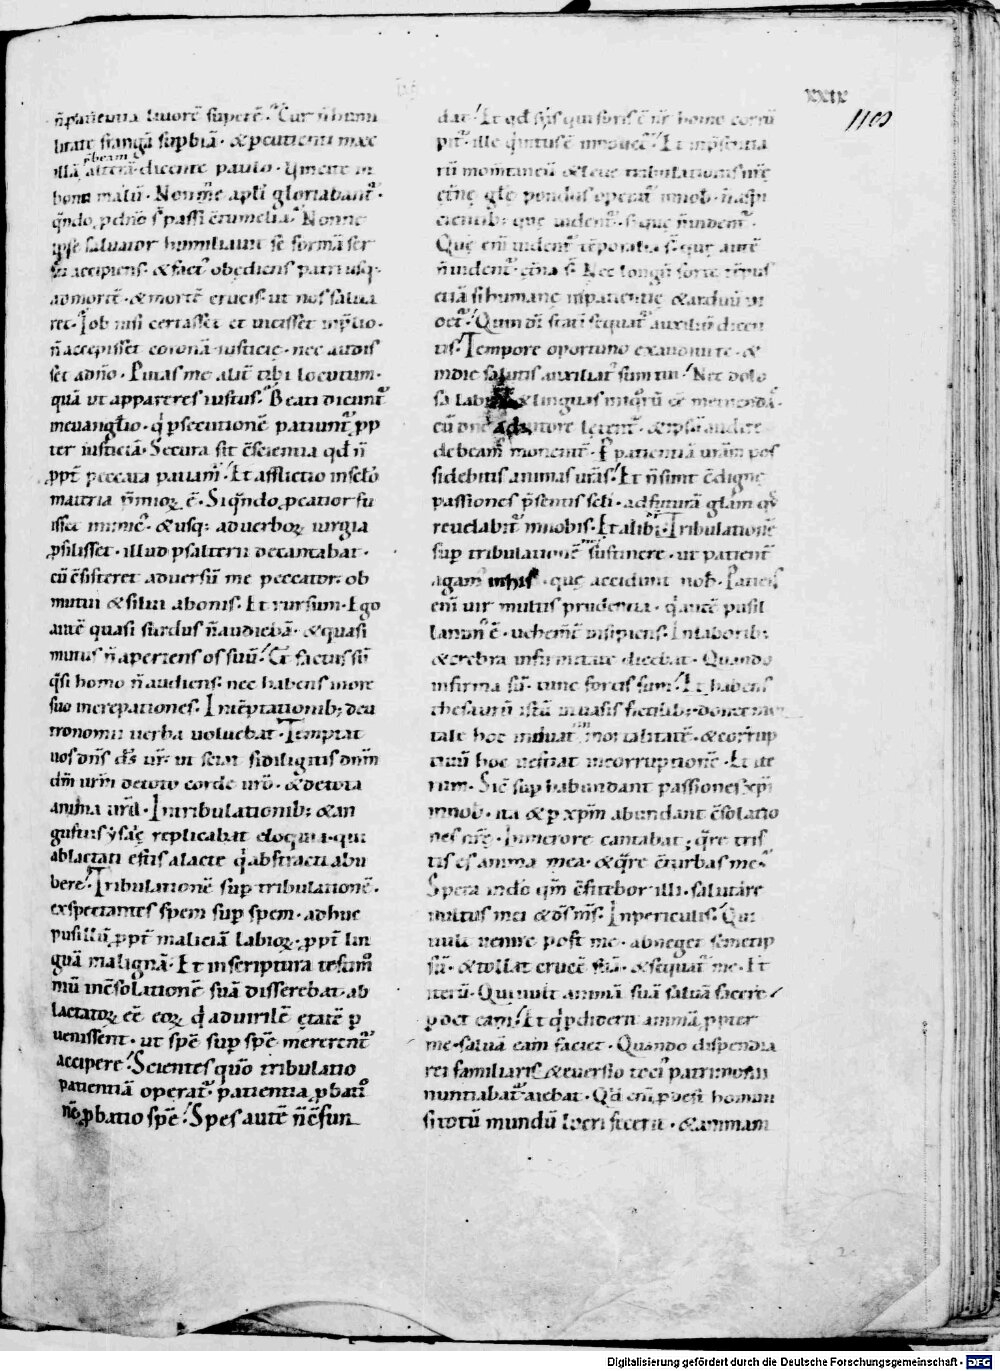 xxix
1109
n̄ patientia livorē superē? Cur n̄ humi
litate frangā supbiā · & peutienti maxi
illā p̄beam alterā · dicente paulo · Vincite in
bono malū · Nonn̄e apłi gloriabant᷑
q̄ndo ,p dn̄o s̄ passi c̄tumeliā? Nonne
ipse salvator humiliavit se formā ser
vi accipiens · & fact᷑ obędiens patri usq;
ad mortē · & mortē crucis · ut nos salva
ret · Iob nisi certasset et vicisset in p̄lio ·
n̄ accepisset coronā iusticię · nec audis
set a dn̄o · Putas me alit̄ tibi locutum ·
quā ut appareres iustus? Beati dicunt᷑
in evanglio · q̇ psecutionē patiunt᷑ pp
ter iusticiā · Secura sit c̄scientia qd n̄
,ppt̄ peccata patiam᷑ · Et afflictio in sclo
materia p̄mioꝝ ē · Siq̄ndo ,peatior fu
isset inimic᷑ · & usq; ad verboꝝ iurgia
,psilisset · illud psalterii decantabat ·
cū c̄sisteret adversū me peccator · ob
mutui & silui a bonis · Et rursum · Ego
autē quasi surdus n̄ audiebā · & quasi
mutus n̄ aperiens os suū · Et factus sū
q̄si homo n̄ audiens · nec habens in ore
suo increpationes · In tēptationib; deu
tronomii verba volvebat · Temptat
vos dn̄s ds̄ vr̄ · ut sciat si diligitis dnm̄
dm̄ vrm̄ de toto corde vr̄o · & de tota
anima vr̄a · In tribulationib; & an
gustiis ysaię replicabat eloquia · qui
ablactati estis a lacte q̇ abstracti ab u
bere · Tribulationē sup tribulationē ·
expectantes spem sup spem · adhuc
pusillū ,ppt̄ maliciā labioꝝ · ,ppt̄ lin
guā malignā · Et in scriptura testim̄
niū in c̄solationē suā disserebat · ab
lactatoꝝ ēē eoꝝ q̇ ad virilē ętatē p
venissent · ut spē sup spē mererent᷑
accipere · Scientes quō tribulatio
patientiā operat᷑ · patientia ,pbati
nē · ,pbatio spē · Spes autē n̄ c̄fun
dat · Et qd si is qui foris ē nr̄ homo corrū
pit᷑ · ille q̇ intus ē innovet᷑ · Et in p̄sentia
rū momtaneū & leve tribulationis nr̄ę
ęt̄nę glę pondus operat᷑ in nob · n̄ aspi
cientib; quę vident᷑ · s; quę n̄ vident᷑ ·
Quę em̄ vident᷑ tēporalia s̄ · quę autē
n̄ vident᷑ · ęt̄na s̄ · Nec longū fore tēpus
etiā si humanę inpatientię & arduū vi
det᷑ · Quin dī statī sequat᷑ auxiliū dicen
tis · Tempore oportuno exaudivi te · &
in die salutis auxiliat᷑ sum tui · Nec dolo
sa labia & linguas iniq̄rū ēē metuendā ·
cū dn̄o adiutore lętent᷑ · & ipsū audire
debeam᷑ monentē · P patientiā vr̄am pos
sidebitis animas vr̄as · Et n̄ sunt c̄dignę
passiones p̄sentis scli · ad futurā glām q̄
revelabit᷑ in nobis · Et alibi · Tribulationē
sup tribulationē sustinere · ut patient̄
agam᷑ in his · quę accidunt nob · Patiens
em̄ vir multus prudentia · q̇ autē pusil
lanim᷑ ē · vehem̄t᷑ insipiens · In laborib;
& crebra infirmitate dicebat · Quando
infirma sū · tunc fortis sum · Et habens
thesaurū istū in vasis fictilib; donec mor
tale hoc induat immortalitatē · & corrup
tivū hoc vestiat incorruptionē · Et ite
rum · Sic̄ suphabundant passiones xpi
in nob · ita & p xpm̄ abundant c̄solatio
nes nr̄ę · In merore cantabat · q̄re tris
tis es anima mea · & q̄re c̄turbas me ·
Spera in do qm̄ c̄fitebor illi · salutare
vultus mei & ds̄ ms̄ · In periculis · Qui
vult venire post me · abneget semetip
sū · & tollat crucē suā · & sequat᷑ me · Et
iterū · Qui vult animā suā salvā facere
p̄det eam · Et q̇ pdiderit animā ,ppter
me · salvā eam faciet · Quando dispendia
rei familiaris & eversio toti᷑ patrimonii
nuntiabat᷑ · aiebat · Qd em̄ ,pdest homini
si totū mundū lucri fecerit · & animam
Digitalisierung gefördert durch die Deutsche Forschungsgemeinschaft - DFG